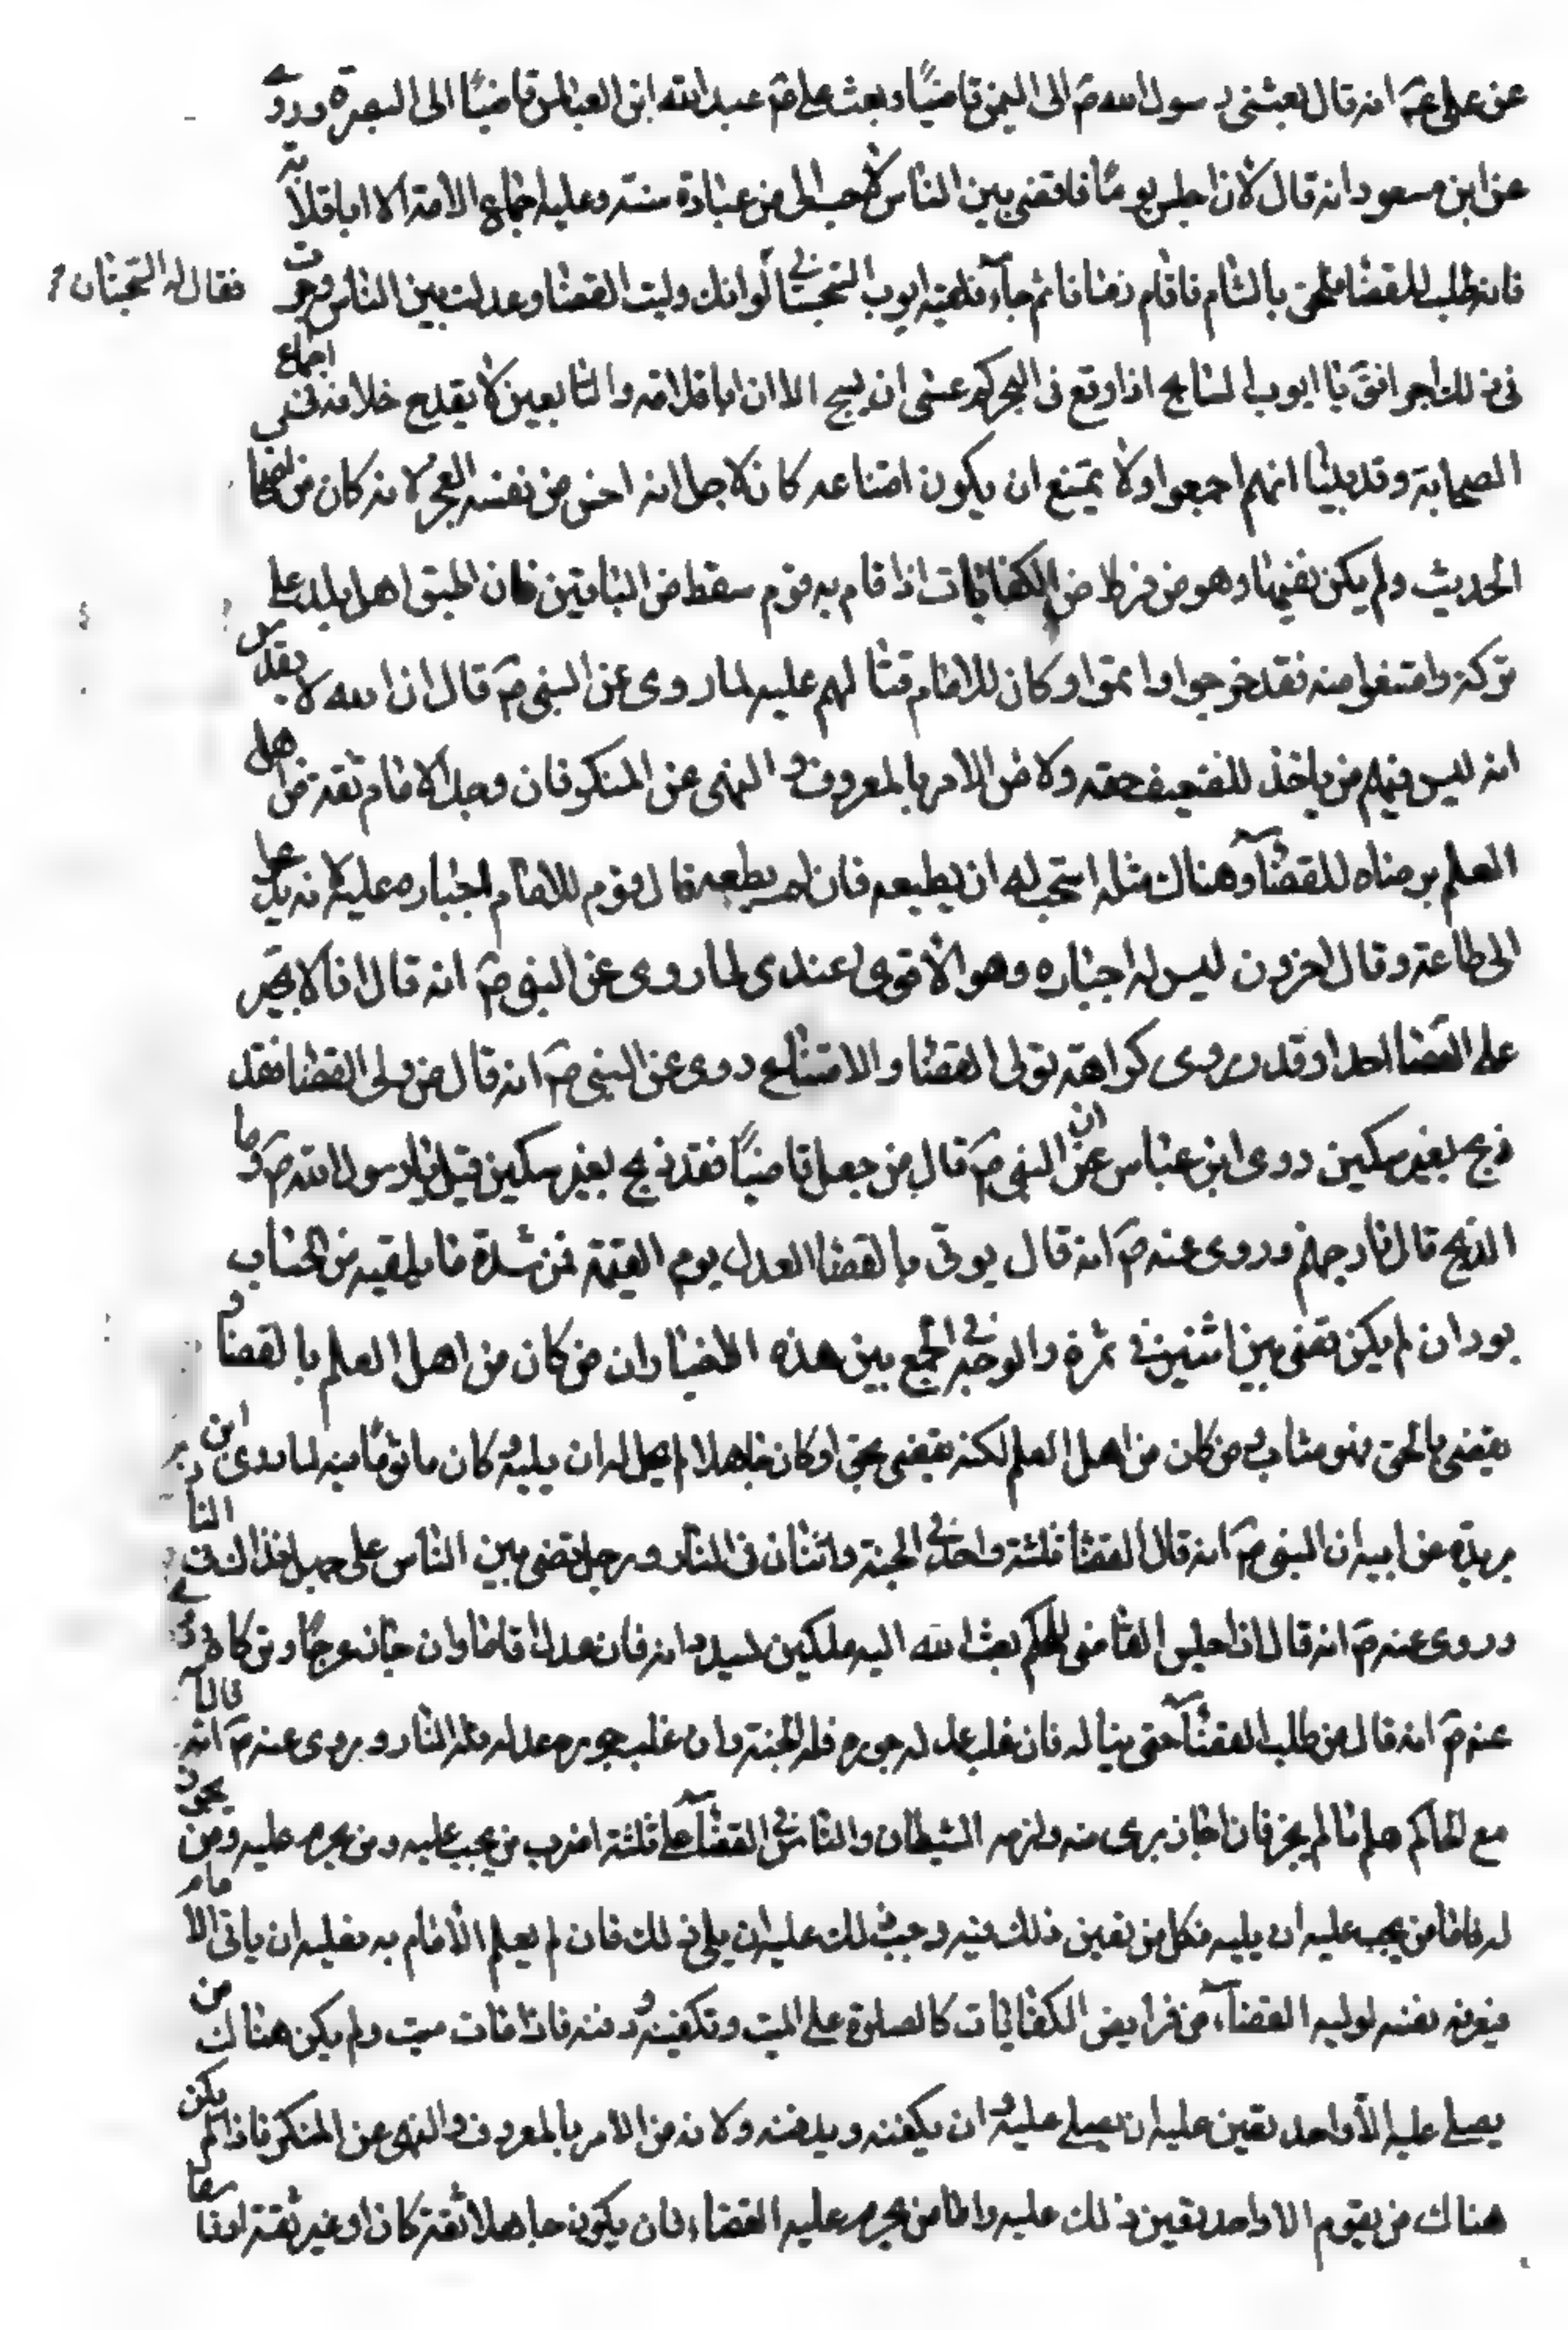 عن علي عۤ انه قال بعثنى رسول الله صۤ الى اليمن قاضيًا وبعث على عۤ عبد الله ابن العباس قاضيًا الى البصرة وروى
عن ابن مسعود انه قال لان اجلس يومًا فاقضى بين الناس لاحب الى من عبادة سنة وعليه اجماع الامة الا ابا قلابة
فانه طلب للقضا فلحق بالشام فاقام زمانا ثم جآء فلقيه ايوب السختيانى لو انك وليت القضا وعدلت بين الناس رجوت
فقال له السختيان
فى ذلك اجرا فقۤ يا ايوب السابح اذا وقع فى البحر كم عسى ان يسبح الا ان ابا قلابة من التابعين لا يقدح خلافه فى اجماع
الصحابة وقد بينا انهم اجمعوا ولا يمتنع ان يكون امتناعه كان لاجل انه احس من نفسه العجز لانه كان من اصحاب
الحديث ولم يكن فقيها وهو من فرايض الكفايات اذا قام به قوم سقط من الباقين فان اطبق اهل بلد على
تركه وامتنعوا منه فقد خرجوا واثموا وكان للامام قتالهم عليه لما روى عن النبى صۤ قال ان الله لا يقدس
انه ليس فيهم من ياخذ للضعيف حقه ولانه من الامر بالمعروف والنهى عن المنكر فان وجد الامام ثقة من اهل
العلم يرضاه للقضآء وهناك مثله استحب له ان يطيعه فان لم يطعه قال قوم للامام اجباره عليه لانه يدعو
الى طاعة وقال اخرون ليس له اجباره وهو الاقوى عندى لما روى عن النبى صۤ انه قال انا لا نجبر
على القضا احدا وقد روى كراهة تولى القضا والامتناع روى عن النبى صۤ انه قال من ولى القضا فقد
ذبح بغير سكين روى ابن عباس عن ان النبى صۤ قال من جعل قاضيًا فقد ذبح بغير سكين قيل يا رسول الله صۤ وما
الذبح قال نار جهنم وروى عنه صۤ انه قال يوتى بالقضا العدل يوم القيمة فمن شدة ما يلقيه من الحساب
يود ان لم يكن قضى بين اثنين فى تمرة والوجه فى الجمع بين هذه الاخبار ان من كان من اهل العلم بالقضا و
يقضى بالحق فهو مثاب ومن كان من اهل العلم لكنه يقضى بحق او كان جاهلا لم يحل له ان يليه كان ماثومًا فيه لما روى ابن
بريدة عن ابيه ان النبى صۤ انه قال القضاة ثلثة واحد فى الجنة واثنان فى النار ورجل قضى بين الناس على جهل فذاك فى النار
وروى عنه صۤ انه قال اذا جلس القاضى للحكم بعث الله اليه ملكين يسددانه فان عدل اقاما وان جار عرجا وتركاه وروى
عنه صۤ انه قال من طلب القضآء حتى يناله فان غلب عدله جوره فله الجنة وان غلب جوره عدله فله النار وروى عنه صۤ انه قال الله
مع الحاكم ما لم يجز فان اجاز برى منه ولزمه الشيطان والناس فى القضآء على ثلثة اضرب من يجب عليه ومن يحرم عليه ومن يجوز
له فاما من يجب عليه ان يليه فكل من تعين ذلك فيه وجب ذلك عليه ان يلى ذلك فان لم يعلم الامام به فعليه ان ياتى الامام
فيعرفه نفسه لوليه القضآء من فرايض الكفايات كالصلوة على الميت وتكفينه ودفنه فاذا مات ميت ولم يكن هناك من
يصلى عليه الا واحد تعين عليه ان يصلى عليه وان يكفنه ويدفنه ولانه من الامر بالمعروف والنهى عن المنكر فاذا لم يكن
هناك من يقوم الا واحد تعين ذلك عليه واما من يحرم عليه القضاء فان يكون جاهلا ثقة كان او غير ثقة او فاسقا